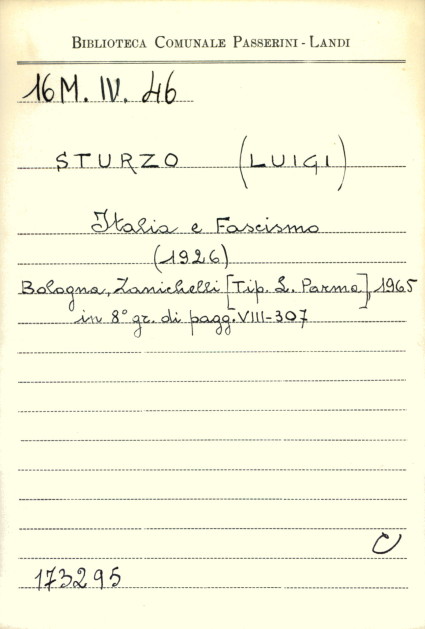 BIBLIOTECA COMUNALE PASSERINI - LANDI
16 M. IV. 46
STURZO (LUIGI)
Italia e Fascismo
(1926)
Bologna, Zanichelli [Tip. L. Parma], 1965
in 8° gr. di pagg. VIII-307
C
173295